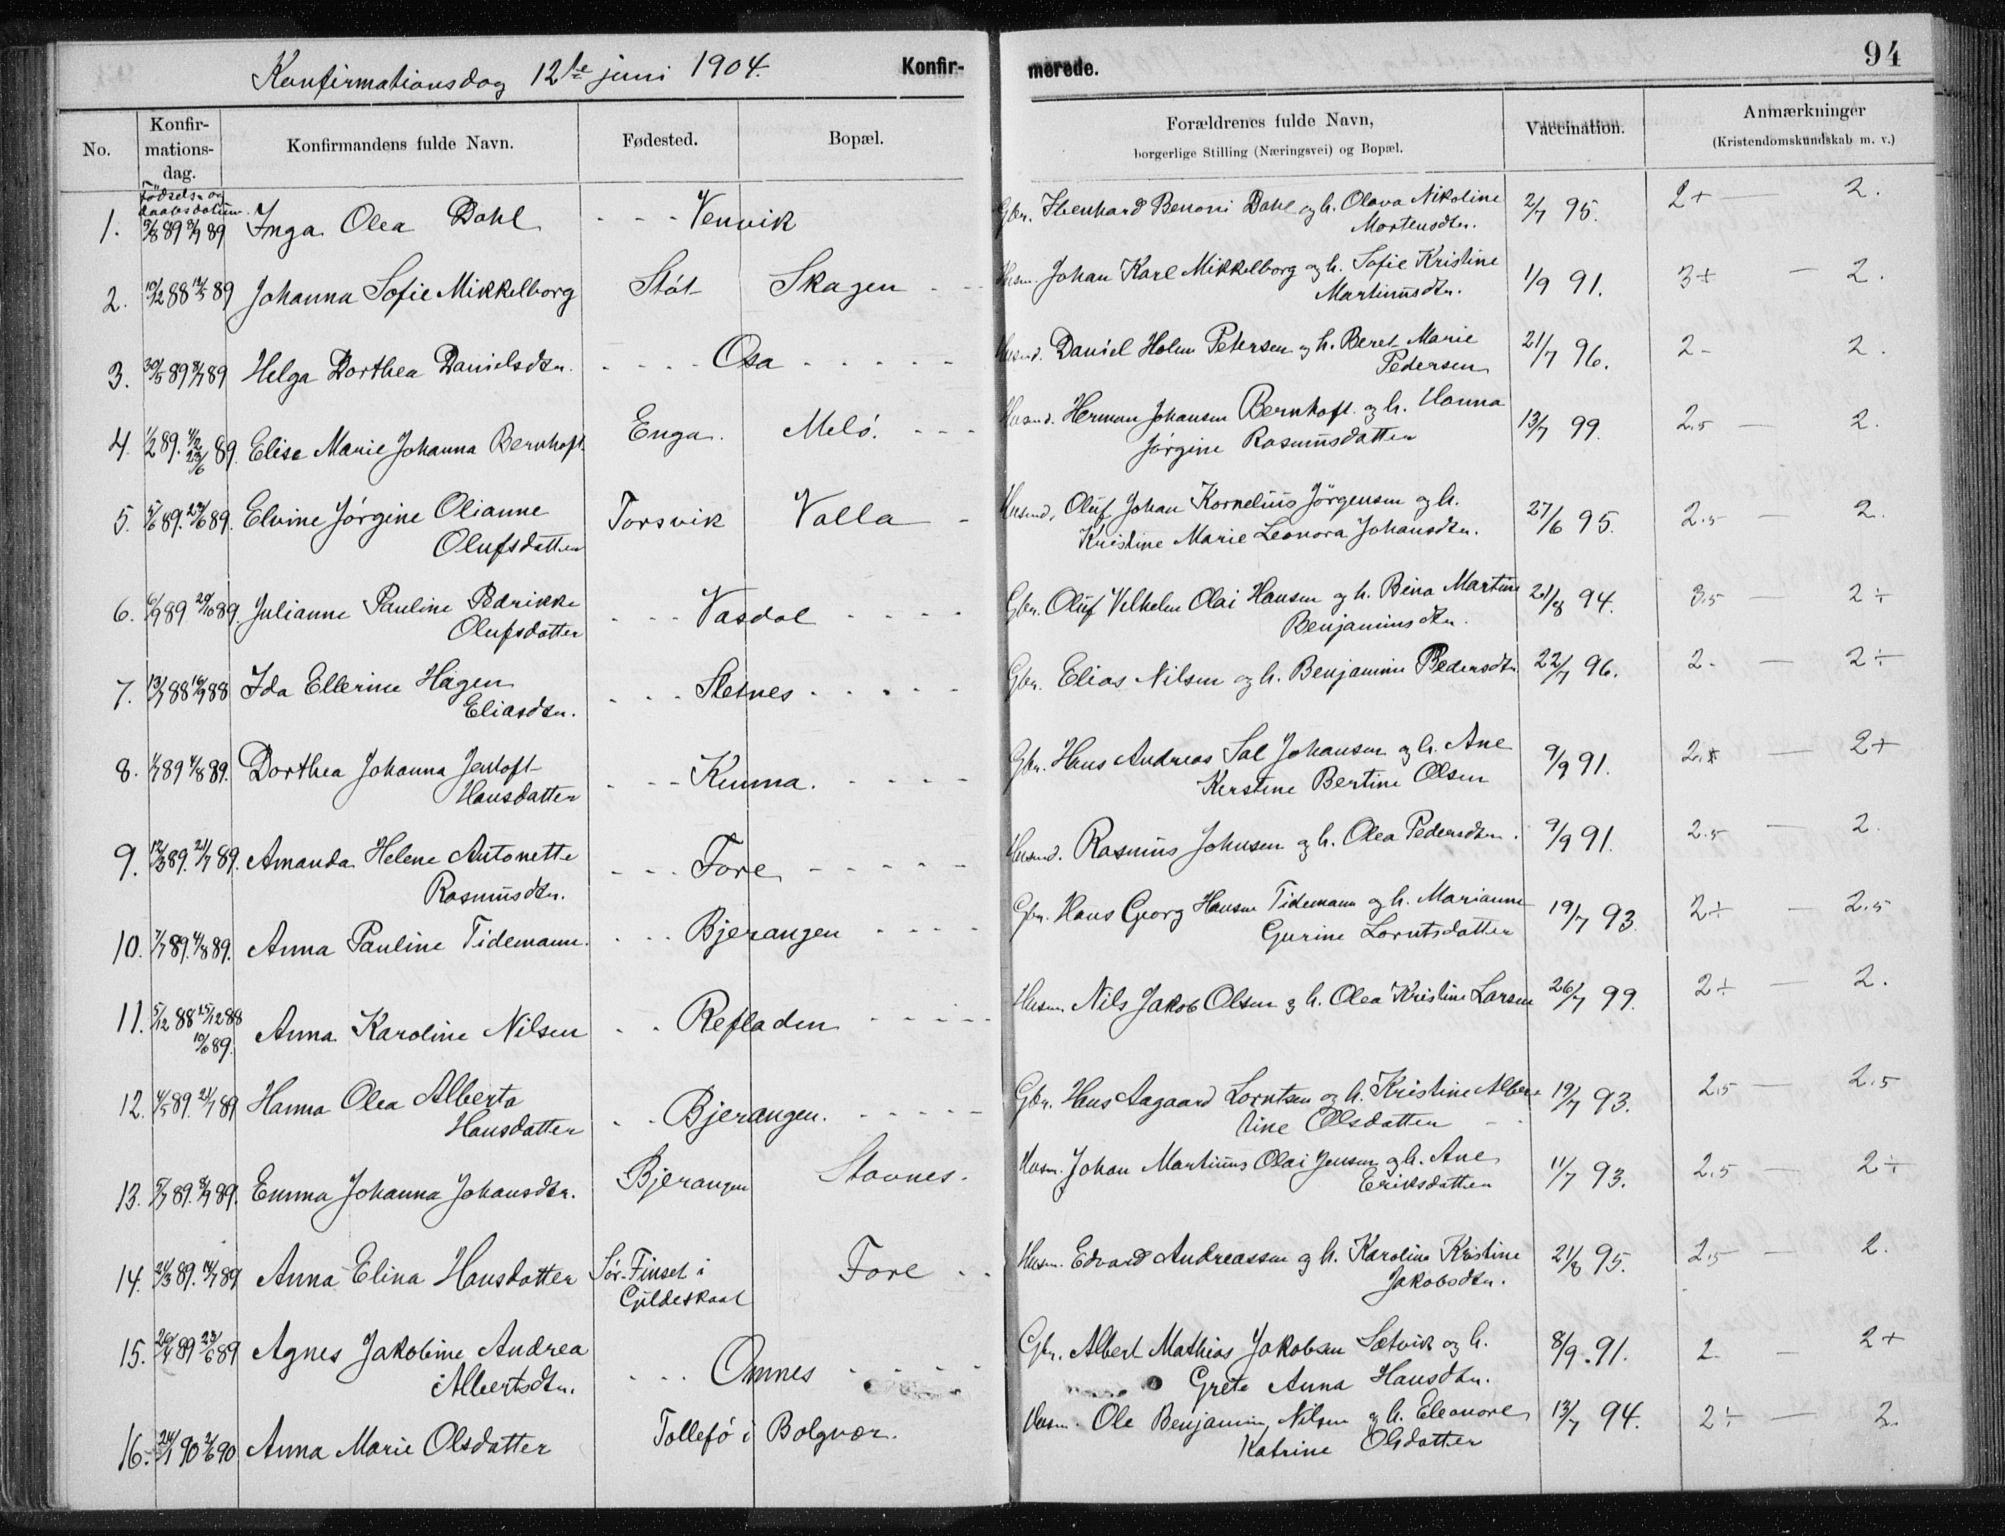 Konfirmationsdag 12te juni 1904.
Konfir-
merede.
94
No.
Konfir-
mations-
dag.
Konfirmandens fulde Navn.
Fødested.
Bopæl.
Forældrenes fulde Navn,
borgerlige Stilling (Næringsvei) og Bopæl.
Vaccination.
Anmærkninger
(Kristendomskundskab m. v.)
Fødsels- og
daabsdatum.
1. 89 89 Inga Olea Dahl - - - Venvik Gbr. Benoni Dahl og h. Olava Nikoline 2/7 95. 2+ — 2.
Mortensdtr.
2. 10/12 88 89 Johanna Sofie Mikkelborg Støt Skagen - - Husm. Johan Karl Mikkelborg og h. Sofie Kristine 1/9 91. 3+ — 2.
Martinusdtr.
3. 30/5 89 89 Helga Dorthea Danielsdtr. - - - - Osa - - - - - Husmd. Daniel Holm Petersen og h. Beret Marie 21/7 96. 2 - 2.
Pedersen
4. 1/2 89. 4/2 89. Elise Marie Johanna Bernhoft Enga. Melö. - - - Husmd. Herman Johansen Bernhoft og h. Hanna 13/7 99. 2.5 — 2.
23/6
Jørgine Rasmusdatter
5. 5/6 89. 24/6 89. Elvine Jørgine Olianne Torsvik Valla - Husmd. Oluf Johan Kornelius Jörgensen og h. 27/6 95. 2.5 — 2.
Olufsdatter Kristine Marie Leonora Johansdtr.
6. 89 20/10 89. Julianne Pauline Pedrikke - - - Vasdal - - - - Gbr. Oluf Vilhelm Olai Hansen og h. Bina Martine 21/8 94. 3.5 — 2÷
Olufsdatter Benjaminsdtr.
7. 88 88 Ida Ellerine Hagen - - - Stetnes - - - - - Gbr. Elias Nilsen og h. Benjamine Pedersdtr. 22/7 96. 2 - — 2÷
Eliasdtr.
8. 89 4/8 89. Dorthea Johanna Jentoft - - - Kunna. - - - - Gbr. Hans Andreas Sal Johansen og h. Ane 9/9 91. — 2+
Hansdatter Kerstine Bertine Olsen
9. 12/3 89. 21/7 89. Amanda Helene Antonette - - - Fore - - - - - Husmd. Rasmus Johnsen og h. Olea Pedersdtr. 9/9 91. 2.5 — 2.
Rasmusdtr.
10. 7/7 89. 4/8 89. Anna Pauline Tidemann. - - - Bjerangen - - - - Gbr. Hans Georg Hansen Tidemann og h. Marianne 19/7 93. 2÷ — 2.5
Gurine Lorntsdatter
11. 5/12 88 25/12 88 Anna Karoline Nilsen - - Refladen - - - - - Husm. Nils Jakob Olsen og h. Olea Kristine Larsen 26/7 99. 2÷ — 2.
10/6 89.
12. 4/5 89. 21/7 89 Hanna Olea Alberta - - Bjerangen. - - - - - Gbr. Hans Aagaard Lorntsen og h. Kristine Alber- 19/7 93. 2.5 — 2.5
Hansdatter tine Olsdatter
13. 89. 89. Emma Johanna Johansdtr. Bjerangen Stavnes. Husm. Johan Martinus Olai Jensen og h. Ane 11/7 93. 2.5 — 2÷
Eriksdatter
14. 21/3 89. 14/7 89 Anna Elina Hansdatter Sør-Finset i Fore - - Husm. Edvard Andreassen og h. Karoline Kristine 21/8 95. 2.5 — 2.
Gildeskaal Jakobsdtr.
15. 20/4 89 23/6 89 Agnes Jakobine Andrea - - - Omnes - - - - Gbr. Albert Mathias Jakobsen Sætvik og h. 8/9 91. 2 — 2+
Albertsdtr. Grete Anna Hansdtr.
16. 24/1 90 90 Anna Marie Olsdatter Tollefø i Bolgvær. Husm. Ole Benjamin Nilsen og h. Eleonore 13/7 94. 2÷ — 2.
Katrine Olsdatter